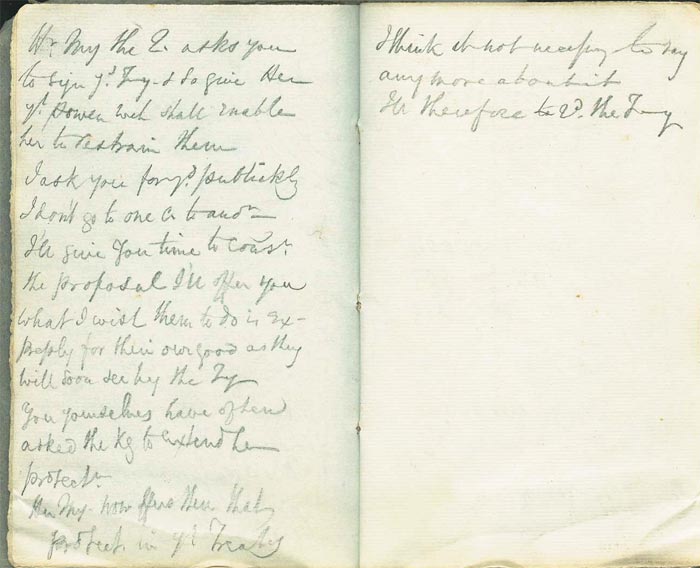 Hr. My the Q. asks you
to sign ys. Ty. & so give Her
yt. power wch shall enable
her to restrain them
I ask you for ys. publickly
I don't go to one Cf. to andr.
I'll give you time to consr.
the proposal I'll offer you
what I wish them to do is ex-
pressly for their own good as they
will soon see by the Ty
You yourselves have often
asked the Kg to extend her
protectn.
Her My. now offers them that
protect. in yt. Treaty
I think it not necessary to say
any more about it
Ill therefore to rd. the Ty